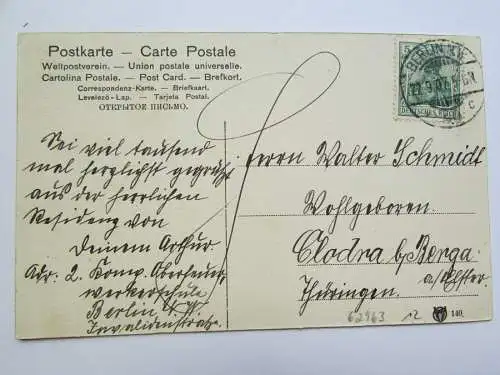 Postkarte — Carte Postale
Weltpostverein. — Union postale universelle.
Cartolina Postale. — Post Card. — Brefkort.
Correspondenz-Karte. — Briefkaart.
Levelező-Lap. — Tarjeta Postal.
ОТКРЫТОЕ ПИСЬМО.
5
BERLIN
DEUTSCHES REICH
Sei viel tausend
mal herzlichst gegrüßt
aus der herrlichen
Residenz von
Deinem Arthur
Adr. 2. Komp. Oberfeuer
werkerschule
Berlin
Invalidenstraße.
Herrn Walter Schmidt
Wohlgeboren.
Clodra b/Berga
a/Elster.
Thüringen.
62963
12
140.